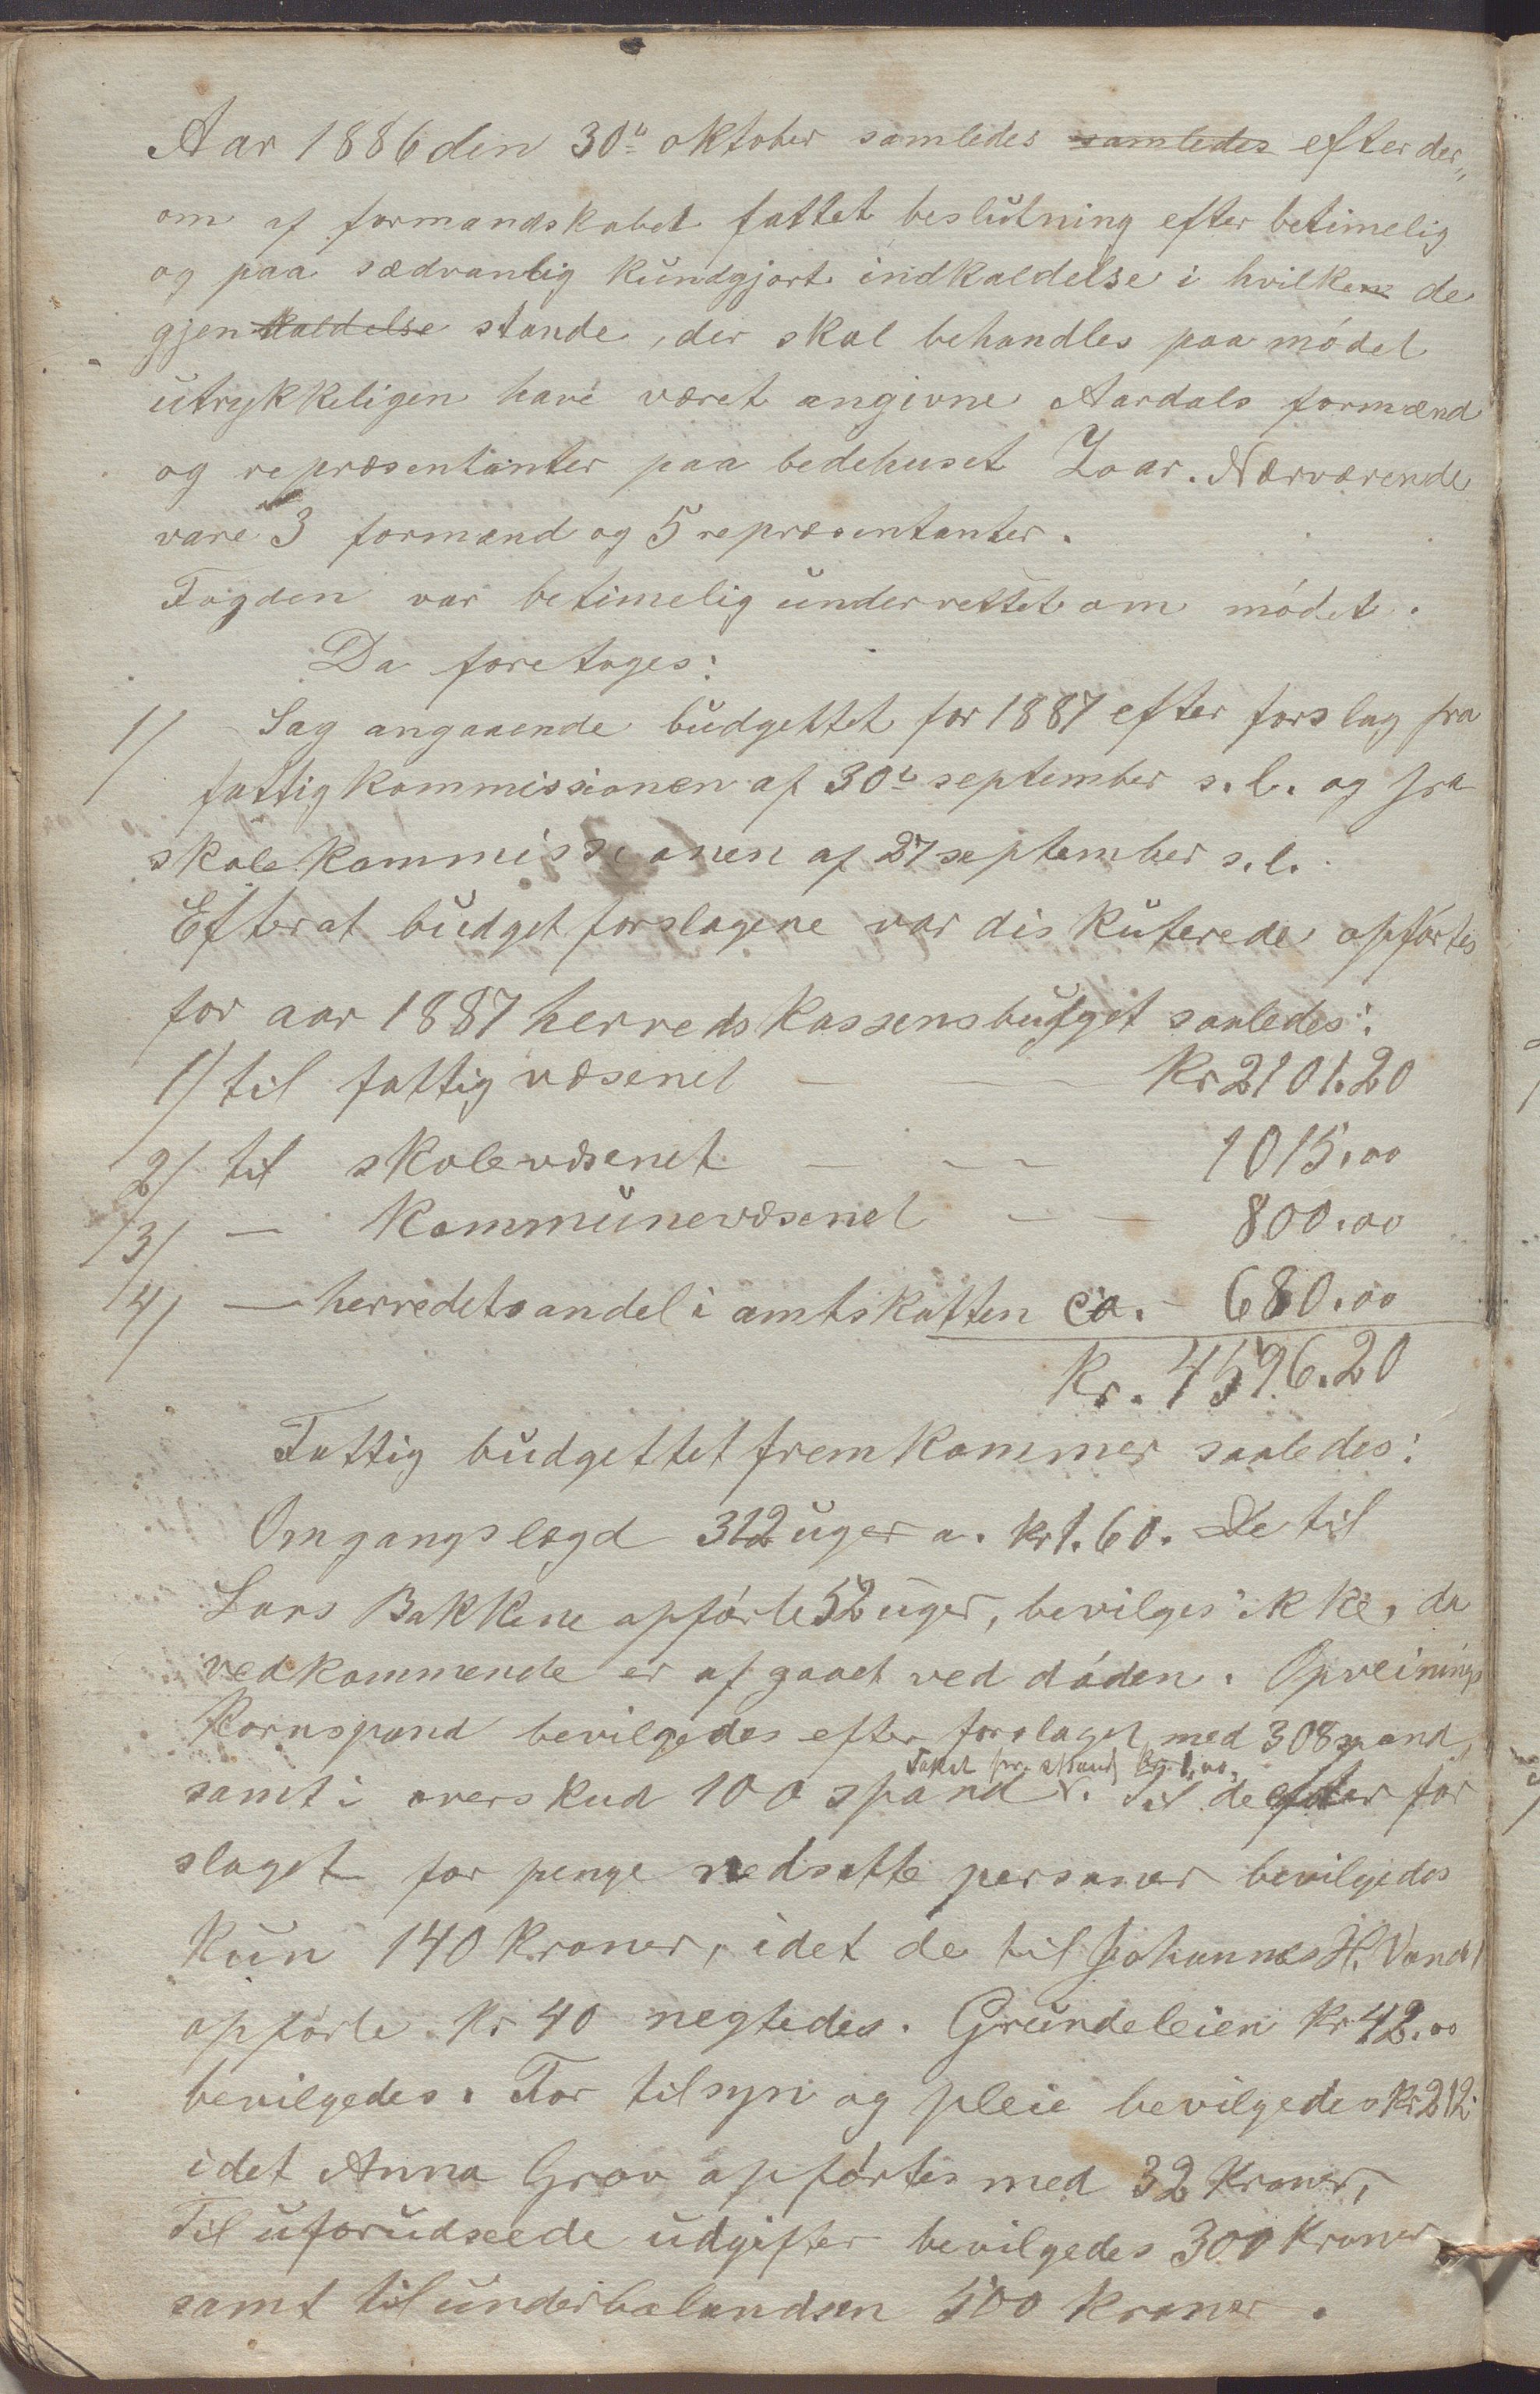 Aar 1886 den 30te oktober samledes samledes efter der„
om af formandskabet fattet beslutning efter betimelig
og paa sædvanlig kundgjort indkaldelse i hvilken de
gjenkaldelse stande, der skal behandles paa mødet
utrykkeligen have været angivne Aardals formænd
og repræsentanter paa bedehuset Zoar. Nærværende
vare 3 formænd og 5 repræsentanter.
Fogden var betimelig underrettet om mødet.
Da foretoges:
1/ Sag angaaende budgettet for 1887 efter forslag fra
fattigkommissionen af 30te september s.l. og fra
skolekommissionen af 27 september s.l.
Efterat budgetforslagene var diskuterede opførtes
for aar 1887 herredskassens budget saaledes:
1/ til fattigvæsenet — — Kr 2101.20
2/ til skolevæsenet — — — 1015.00
3/ — Kommunevæsenet — — 800.00
4/ — herredets andel i amtskatten ca. - 680.00
Kr. 4596.20
Fattigbudgettet fremkommer saaledes:
Omgangslægd 312 uger a. kr 1.60. De til
Lars Bakkene opførte 52 uger, bevilges ikke, da
vedkommende er afgaaet ved døden. Opreinings
kornspand bevilgedes efter forslaget med 308 spand,
Takst pr. spand Kr. 1,00,
samt i overskud 100 spand v. Til de efter for
slaget for penge nedsatte personer bevilgedes
kun 140 kroner, idet de til Johannes H. Vandl
opførte kr 40 negtedes. Grundeleien kr 42.00
bevilgedes. For tilsyn og pleie bevilgedes kr 212.
idet Anna Grov opførtes med 32 kroner,
Til uforudseede udgifter bevilgedes 300 kroner
samt til underbalandsen 500 kroner.